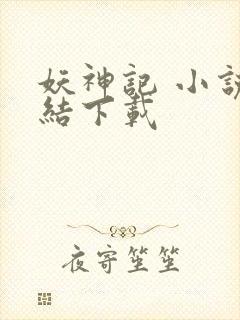 妖神記 小説
結下載
夜寄笙笙